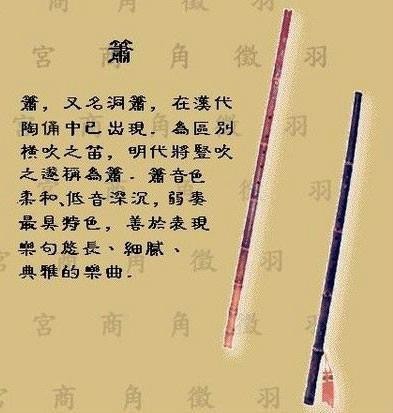 宮 商 角 徵 羽
簫
簫，又名洞簫，在漢代
陶俑中已出現．為區別
橫吹之笛，明代將豎吹
之邃稱為簫．簫音色
柔和､低音深沉，弱奏
最具特色，善於表現
樂句悠長、細膩、
典雅的樂曲．
宮 商 角 徵 羽
宮 商 角 徵 羽
宮 商 角 徵 羽
宮 商 角 徵 羽
宮 商 角 徵 羽